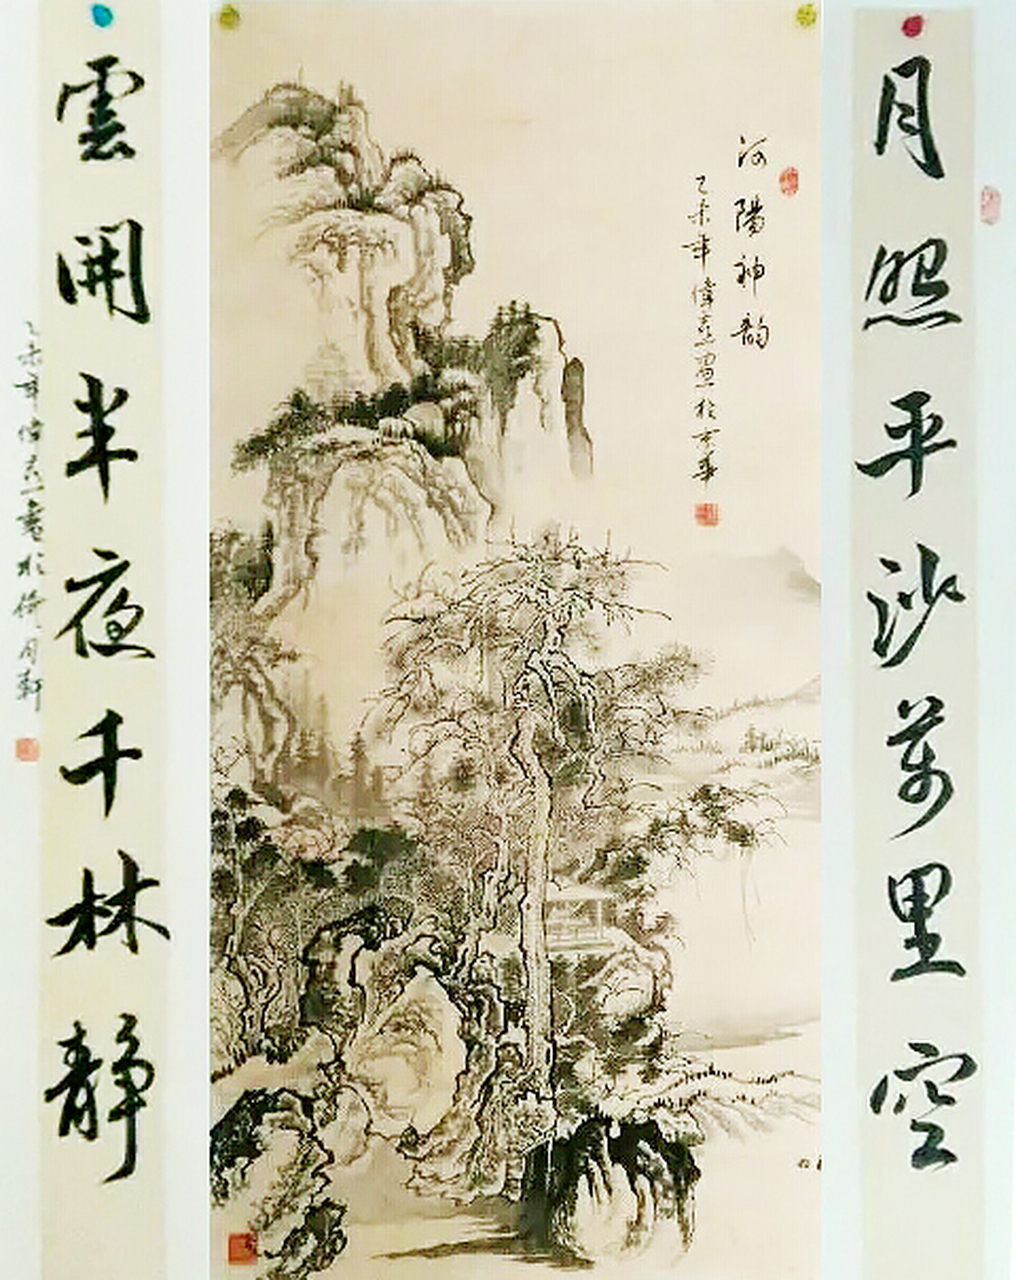 月照平沙萬里空
河陽神韵
乙未年偉
畫於京華
雲開半夜千林静
乙未年偉
書於倚月軒